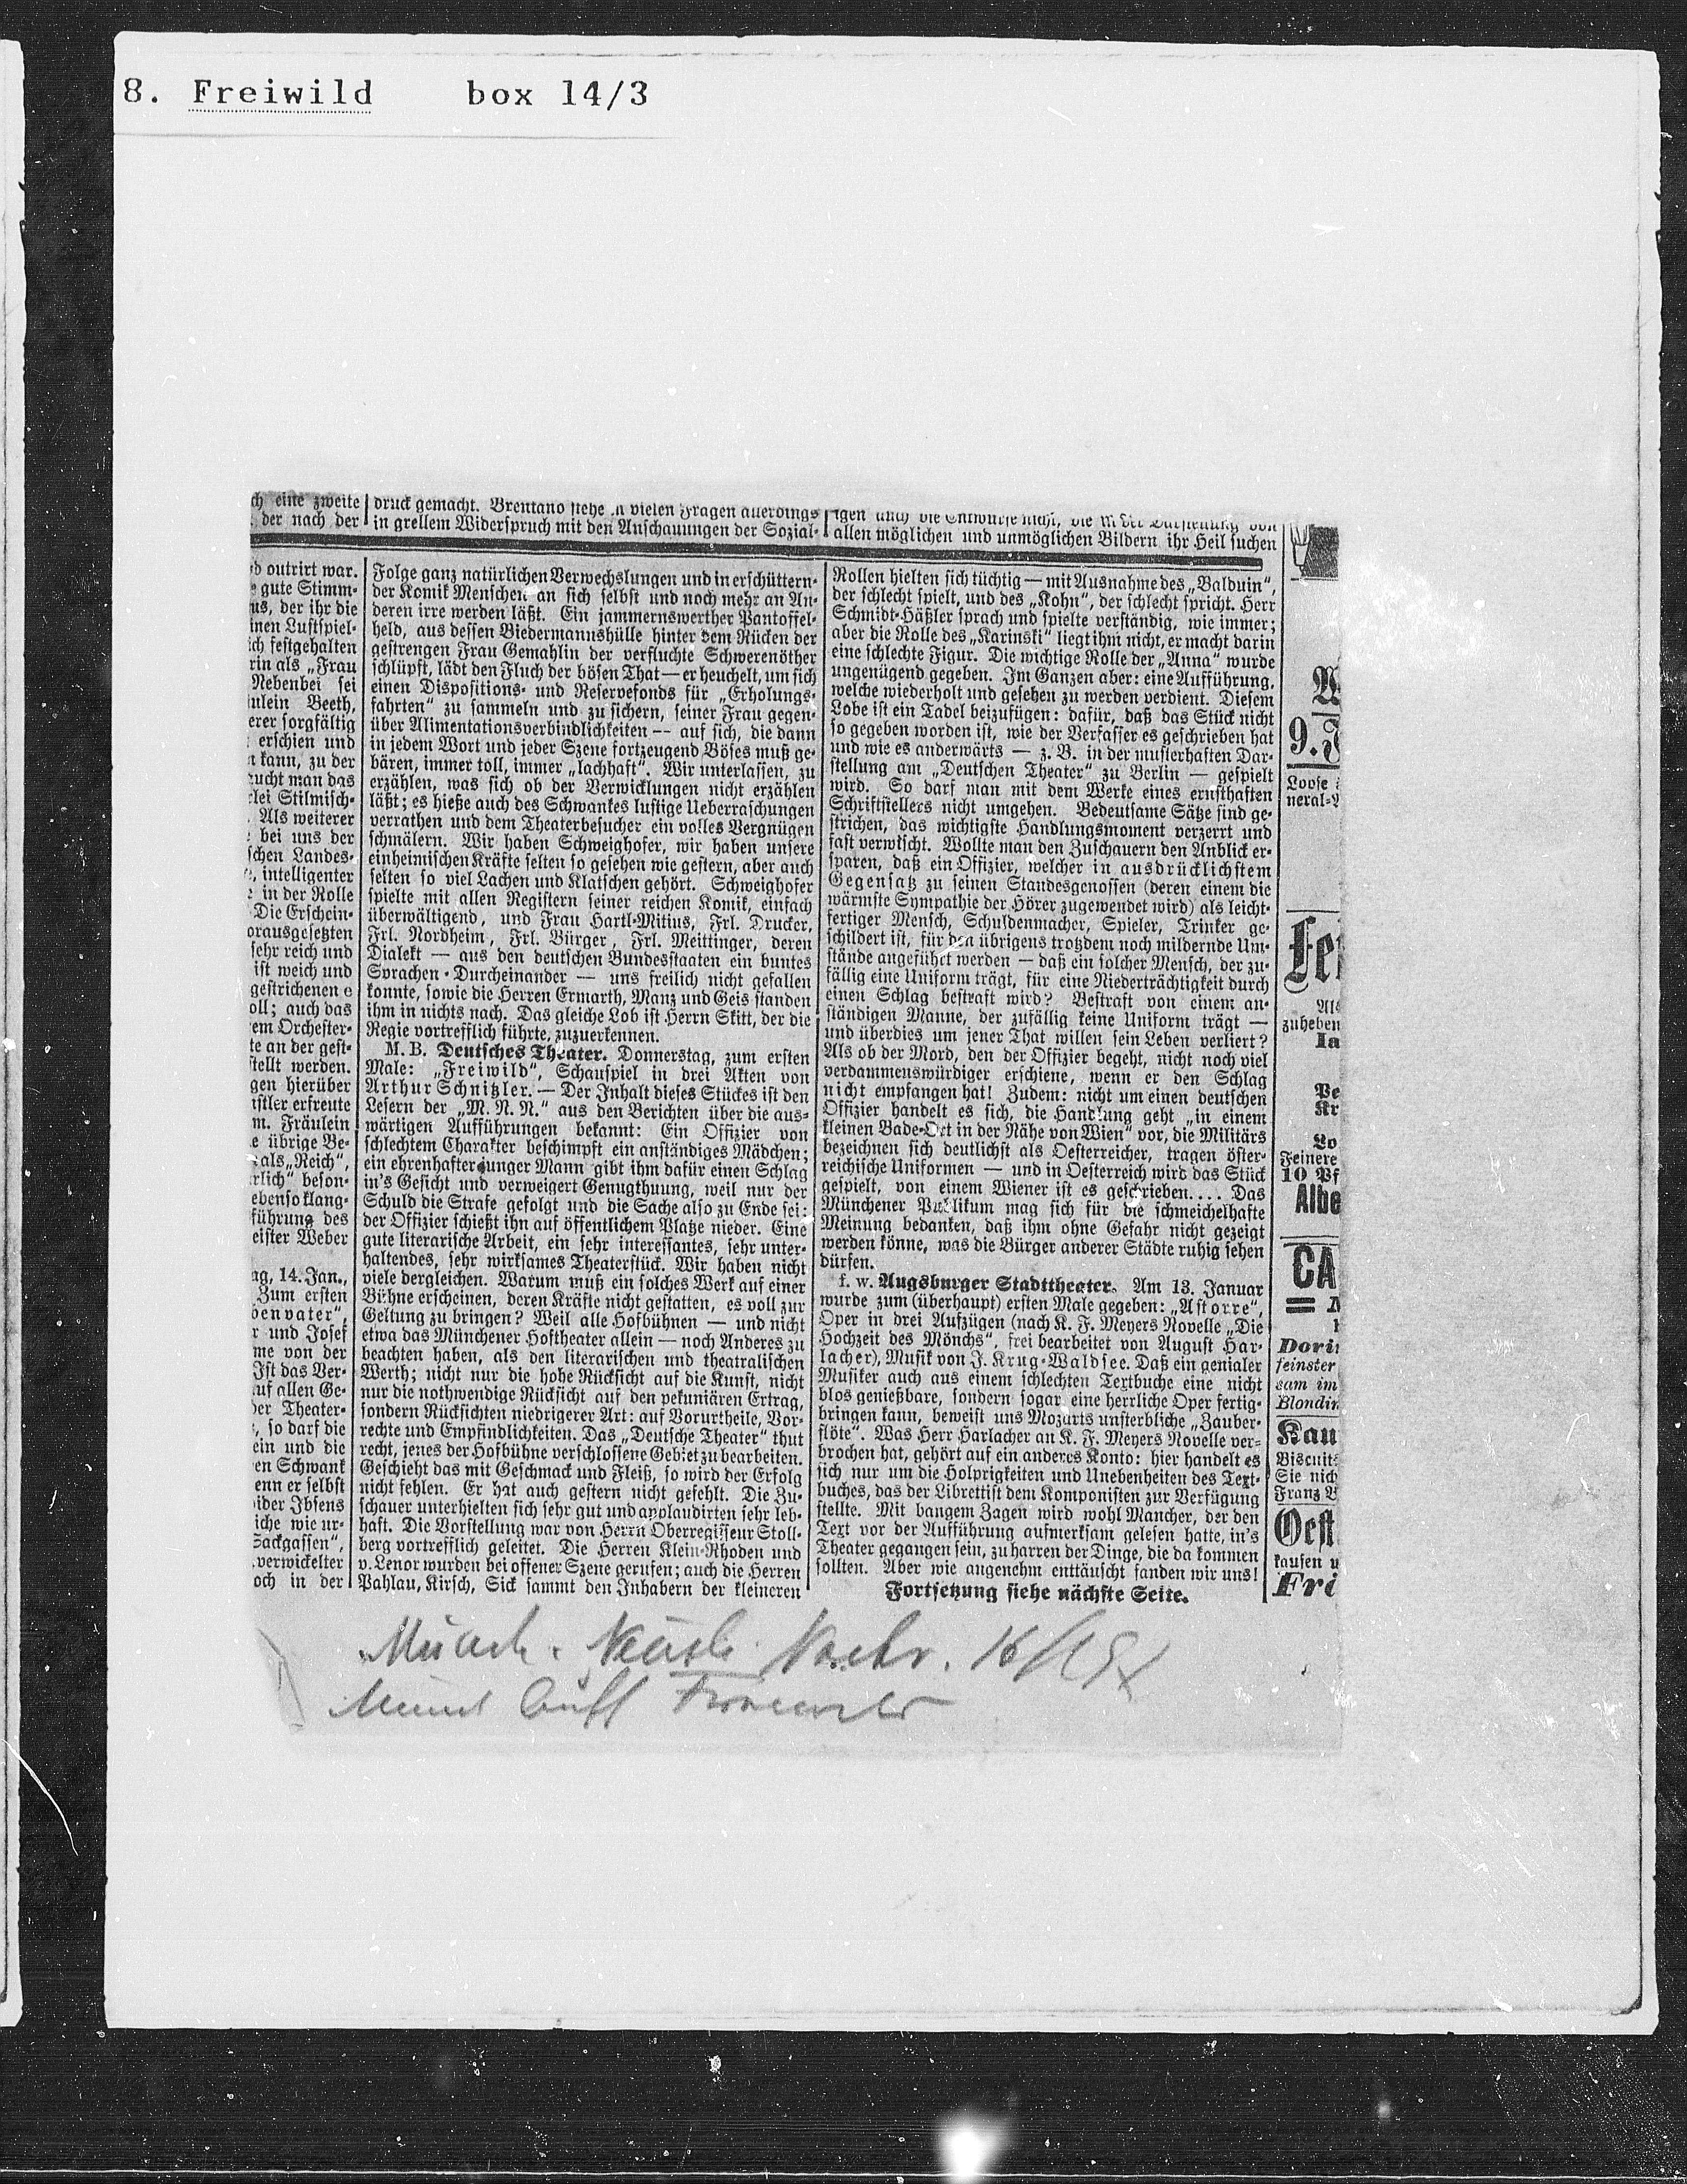 8. Freiwild box 14/3
ch eine zweite
der nach der
d outrirt war.
e gute Stimm-
us, der ihr die
inen Lustspiel-
ich festgehalten
rin als „Frau
Nebenbei sei
äulein Beeth,
erer sorgfältig
erschien und
n kann, zu der
sucht man das
rlei Stilmisch-
Als weiterer
bei uns der
schen Landes-
intelligenter
in der Rolle
Die Erschein-
orausgesetzten
sehr reich und
ist weich und
gestrichenen e
oll; auch das
em Orchester-
te an der gest-
stellt werden.
gen hierüber
nstler erfreute
m. Fräulein
e übrige Be-
als „Reich",
rlich" beson-
ebenso klang-
führung des
eister Weber
ag, 14. Jan.,
Zum ersten
benvater",
r und Josef
me von der
Ist das Ver-
auf allen Ge-
der Theater-
, so darf die
ein und die
en Schwank
enn er selbst
ider Ibsens
iche wie ur-
Sackgassen",
verwickelter
och in der
druck gemacht. Brentano stehe in vielen Fragen allerdings
in grellem Widerspruch mit den Anschauungen der Sozial-
Folge ganz natürlichen Verwechslungen und in erschüttern-
der Komik Menschen an sich selbst und noch mehr an An-
deren irre werden läßt. Ein jammernswerther Pantoffel-
held, aus dessen Biedermannshülle hinter dem Rücken der
gestrengen Frau Gemahlin der verfluchte Schwerenöther
schlüpft, lädt den Fluch der bösen That — er heuchelt, um sich
einen Dispositions- und Reservefonds für „Erholungs-
fahrten" zu sammeln und zu sichern, seiner Frau gegen-
über Alimentationsverbindlichkeiten -- auf sich, die dann
in jedem Wort und jeder Szene fortzeugend Böses muß ge-
bären, immer toll, immer „lachhaft". Wir unterlassen, zu
erzählen, was sich ob der Verwicklungen nicht erzählen
läßt; es hieße auch des Schwankes lustige Ueberraschungen
verrathen und dem Theaterbesucher ein volles Vergnügen
schmälern. Wir haben Schweighofer, wir haben unsere
einheimischen Kräfte selten so gesehen wie gestern, aber auch
selten so viel Lachen und Klatschen gehört. Schweighofer
spielte mit allen Registern seiner reichen Komik, einfach
überwältigend, und Frau Hartl-Mitius, Frl. Drucker,
Frl. Nordheim, Frl. Bürger, Frl. Meittinger, deren
Dialekt — aus den deutschen Bundesstaaten ein buntes
Sprachen-Durcheinander — uns freilich nicht gefallen
konnte, sowie die Herren Ermarth, Manz und Geis standen
ihm in nichts nach. Das gleiche Lob ist Herrn Skitt, der die
Regie vortrefflich führte, zuzuerkennen.
M. B. Deutsches Theater. Donnerstag, zum ersten
Male: „Freiwild", Schauspiel in drei Akten von
Arthur Schnitzler. — Der Inhalt dieses Stückes ist den
Lesern der „M. N. N." aus den Berichten über die aus-
wärtigen Aufführungen bekannt: Ein Offizier von
schlechtem Charakter beschimpft ein anständiges Mädchen;
ein ehrenhafter junger Mann gibt ihm dafür einen Schlag
in's Gesicht und verweigert Genugthuung, weil nur der
Schuld die Strafe gefolgt und die Sache also zu Ende sei:
der Offizier schießt ihn auf öffentlichem Platze nieder. Eine
gute literarische Arbeit, ein sehr interessantes, sehr unter-
haltendes, sehr wirksames Theaterstück. Wir haben nicht
viele dergleichen. Warum muß ein solches Werk auf einer
Bühne erscheinen, deren Kräfte nicht gestatten, es voll zur
Geltung zu bringen? Weil alle Hofbühnen — und nicht
etwa das Münchener Hoftheater allein — noch Anderes zu
beachten haben, als den literarischen und theatralischen
Werth; nicht nur die hohe Rücksicht auf die Kunst, nicht
nur die nothwendige Rücksicht auf den pekuniären Ertrag,
sondern Rücksichten niedrigerer Art: auf Vorurtheile, Vor-
rechte und Empfindlichkeiten. Das „Deutsche Theater" thut
recht, jenes der Hofbühne verschlossene Gebiet zu bearbeiten.
Geschieht das mit Geschmack und Fleiß, so wird der Erfolg
nicht fehlen. Er hat auch gestern nicht gefehlt. Die Zu-
schauer unterhielten sich sehr gut und applaudirten sehr leb-
haft. Die Vorstellung war von Herrn Oberregisseur Stoll-
berg vortrefflich geleitet. Die Herren Klein-Rhoden und
v. Lenor wurden bei offener Szene gerufen; auch die Herren
Pahlau, Kirsch, Sick sammt den Inhabern der kleineren
igen auch die Entwürfe nicht, die in der Darstellung von
allen möglichen und unmöglichen Bildern ihr Heil suchen
Rollen hielten sich tüchtig — mit Ausnahme des „Balduin",
der schlecht spielt, und des „Kohn", der schlecht spricht. Herr
Schmidt-Häßler sprach und spielte verständig, wie immer;
aber die Rolle des „Karinski" liegt ihm nicht, er macht darin
eine schlechte Figur. Die wichtige Rolle der „Anna" wurde
ungenügend gegeben. Im Ganzen aber: eine Aufführung,
welche wiederholt und gesehen zu werden verdient. Diesem
Lobe ist ein Tadel beizufügen: dafür, daß das Stück nicht
so gegeben worden ist, wie der Verfasser es geschrieben hat
und wie es anderwärts — z. B. in der musterhaften Dar-
stellung am „Deutschen Theater" zu Berlin — gespielt
wird. So darf man mit dem Werke eines ernsthaften
Schriftstellers nicht umgehen. Bedeutsame Sätze sind ge-
strichen, das wichtigste Handlungsmoment verzerrt und
fast verwischt. Wollte man den Zuschauern den Anblick er-
sparen, daß ein Offizier, welcher in ausdrücklichstem
Gegensatz zu seinen Standesgenossen (deren einem die
wärmste Sympathie der Hörer zugewendet wird) als leicht-
fertiger Mensch, Schuldenmacher, Spieler, Trinker ge-
schildert ist, für den übrigens trotzdem noch mildernde Um-
stände angeführt werden — daß ein solcher Mensch, der zu-
fällig eine Uniform trägt, für eine Niederträchtigkeit durch
einen Schlag bestraft wird? Bestraft von einem an-
ständigen Manne, der zufällig keine Uniform trägt —
und überdies um jener That willen sein Leben verliert?
Als ob der Mord, den der Offizier begeht, nicht noch viel
verdammenswürdiger erschiene, wenn er den Schlag
nicht empfangen hat! Zudem: nicht um einen deutschen
Offizier handelt es sich, die Handlung geht „in einem
kleinen Bade-Ort in der Nähe von Wien" vor, die Militärs
bezeichnen sich deutlichst als Oesterreicher, tragen öster-
reichische Uniformen — und in Oesterreich wird das Stück
gespielt, von einem Wiener ist es geschrieben.... Das
Münchener Publikum mag sich für die schmeichelhafte
Meinung bedanken, daß ihm ohne Gefahr nicht gezeigt
werden könne, was die Bürger anderer Städte ruhig sehen
dürfen.
f. w. Augsburger Stadttheater. Am 13. Januar
wurde zum (überhaupt) ersten Male gegeben: „Astorre",
Oper in drei Aufzügen (nach K. F. Meyers Novelle „Die
Hochzeit des Mönchs", frei bearbeitet von August Har-
lacher), Musik von J. Krug-Waldsee. Daß ein genialer
Musiker auch aus einem schlechten Textbuche eine nicht
blos genießbare, sondern sogar eine herrliche Oper fertig-
bringen kann, beweist uns Mozarts unsterbliche „Zauber-
flöte". Was Herr Harlacher an K. F. Meyers Novelle ver-
brochen hat, gehört auf ein anderes Konto: hier handelt es
sich nur um die Holprigkeiten und Unebenheiten des Text-
buches, das der Librettist dem Komponisten zur Verfügung
stellte. Mit bangem Zagen wird wohl Mancher, der den
Text vor der Aufführung aufmerksam gelesen hatte, in's
Theater gegangen sein, zu harren der Dinge, die da kommen
sollten. Aber wie angenehm enttäuscht fanden wir uns!
Fortsetzung siehe nächste Seite.
9.
Loose
neral-
zuheben
Ia
Feinere
10 Pf
Albe
CA
Dori
feinster
sam im
Blondin
Kau
Biscuit
Sie nich
Franz
Oest
kaufen u
Fri
Münch. Neueste Nachr. 16/1 9
Freiwild